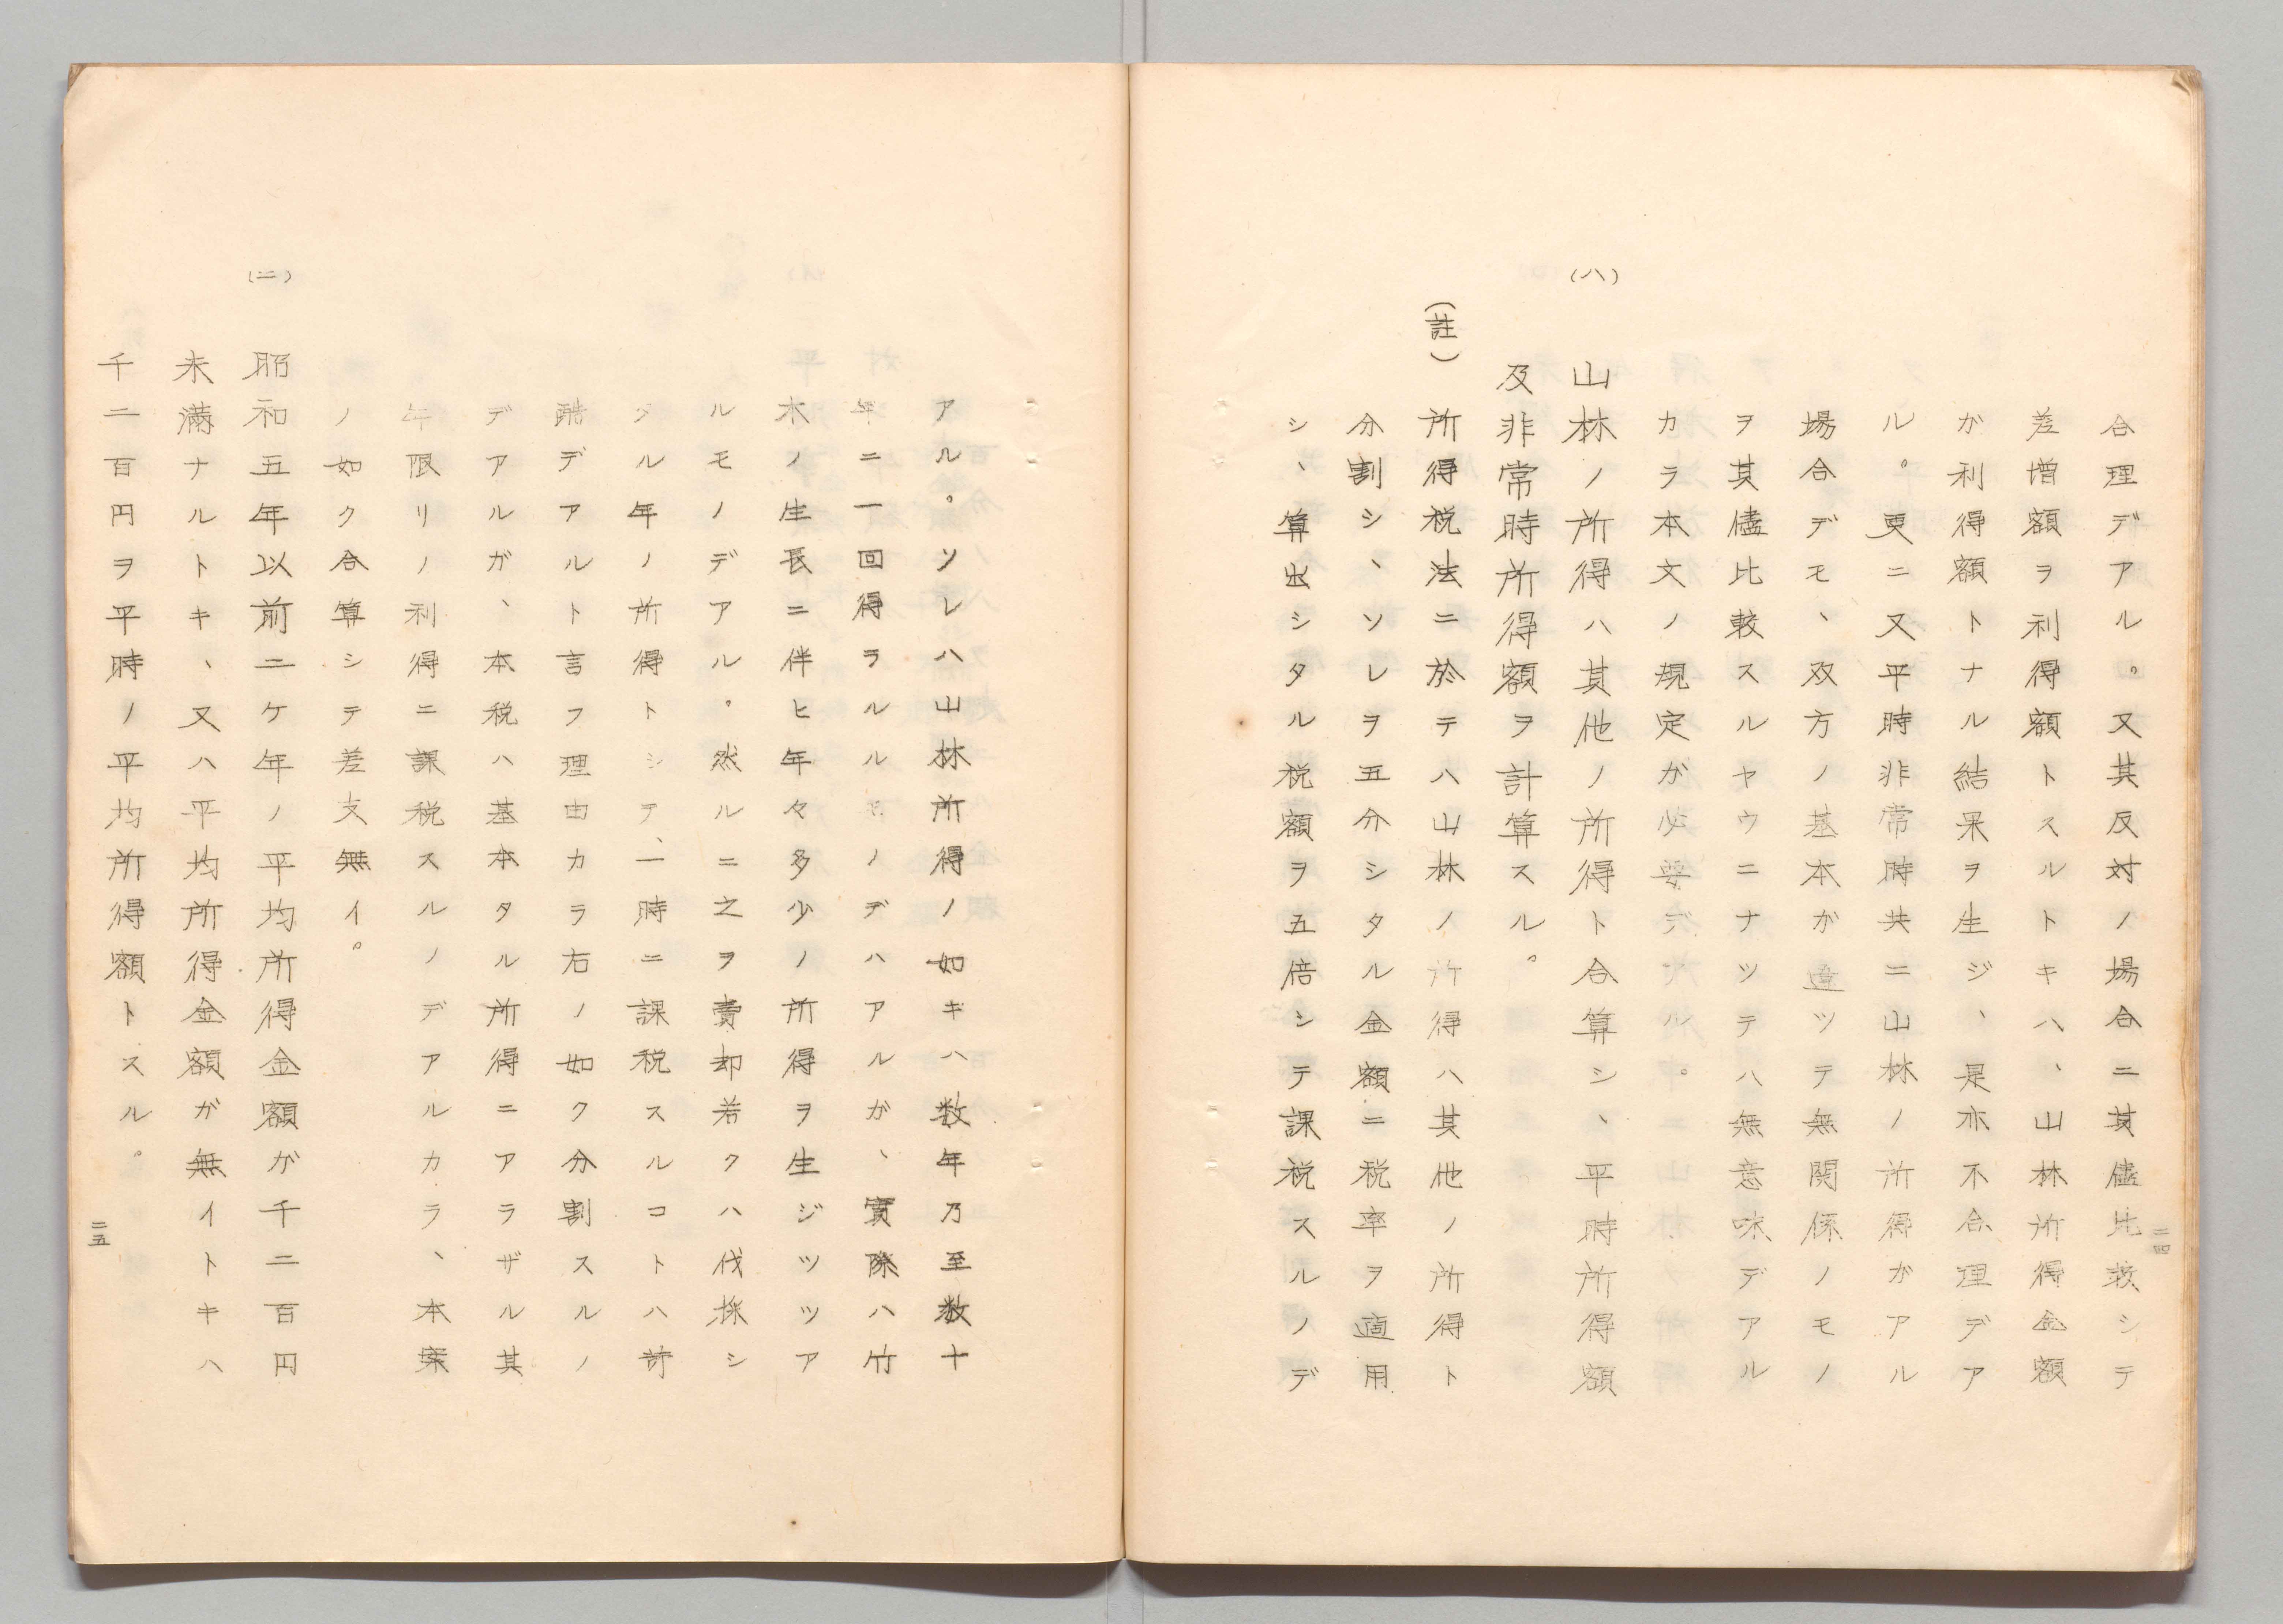 合理デアル。又其反対ノ場合ニ其儘比較シテ
差増額ヲ利得額トスルトキハ、山林所得金額
が利得額トナル結果ヲ生ジ、是亦不合理デア
ル。更ニ又平時非常時共ニ山林ノ所得がアル
場合デモ、双方ノ基本が違ツテ無関係ノモノ
ヲ其儘比較スルヤウニナツテハ無意味デアル
カラ本文ノ規定が必要デアル。
(ハ)
山林ノ所得ハ其他ノ所得ト合算シ、平時所得額
及非常時所得額ヲ計算スル。
(註)
所得税法ニ於テハ山林ノ所得ハ其他ノ所得ト
分割シ、ソレヲ五分シタル金額ニ税率ヲ適用
シ、算出シタル税額ヲ五倍シテ課税スルノデ
二四
アル。ソレハ山林所得ノ如キハ数年乃至数十
年ニ一回得ラルルモノデハアルガ、實際ハ竹
木ノ生長ニ伴ヒ年々多少ノ所得ヲ生ジツツア
ルモノデアル。然ルニ之ヲ賣却若クハ伐採シ
タル年ノ所得トシテ、一時ニ課税スルコトハ苛
酷デアルト言フ理由カラ右ノ如ク分割スルノ
デアルガ、本税ハ基本タル所得ニアラザル其
年限リノ利得ニ課税スルノデアルカラ、本案
ノ如ク合算シテ差支無イ。
(ニ)
昭和五年以前ニケ年ノ平均所得金額が千二百円
未満ナルトキ、又ハ平均所得金額が無イトキハ
千二百円ヲ平時ノ平均所得額トスル。
二五